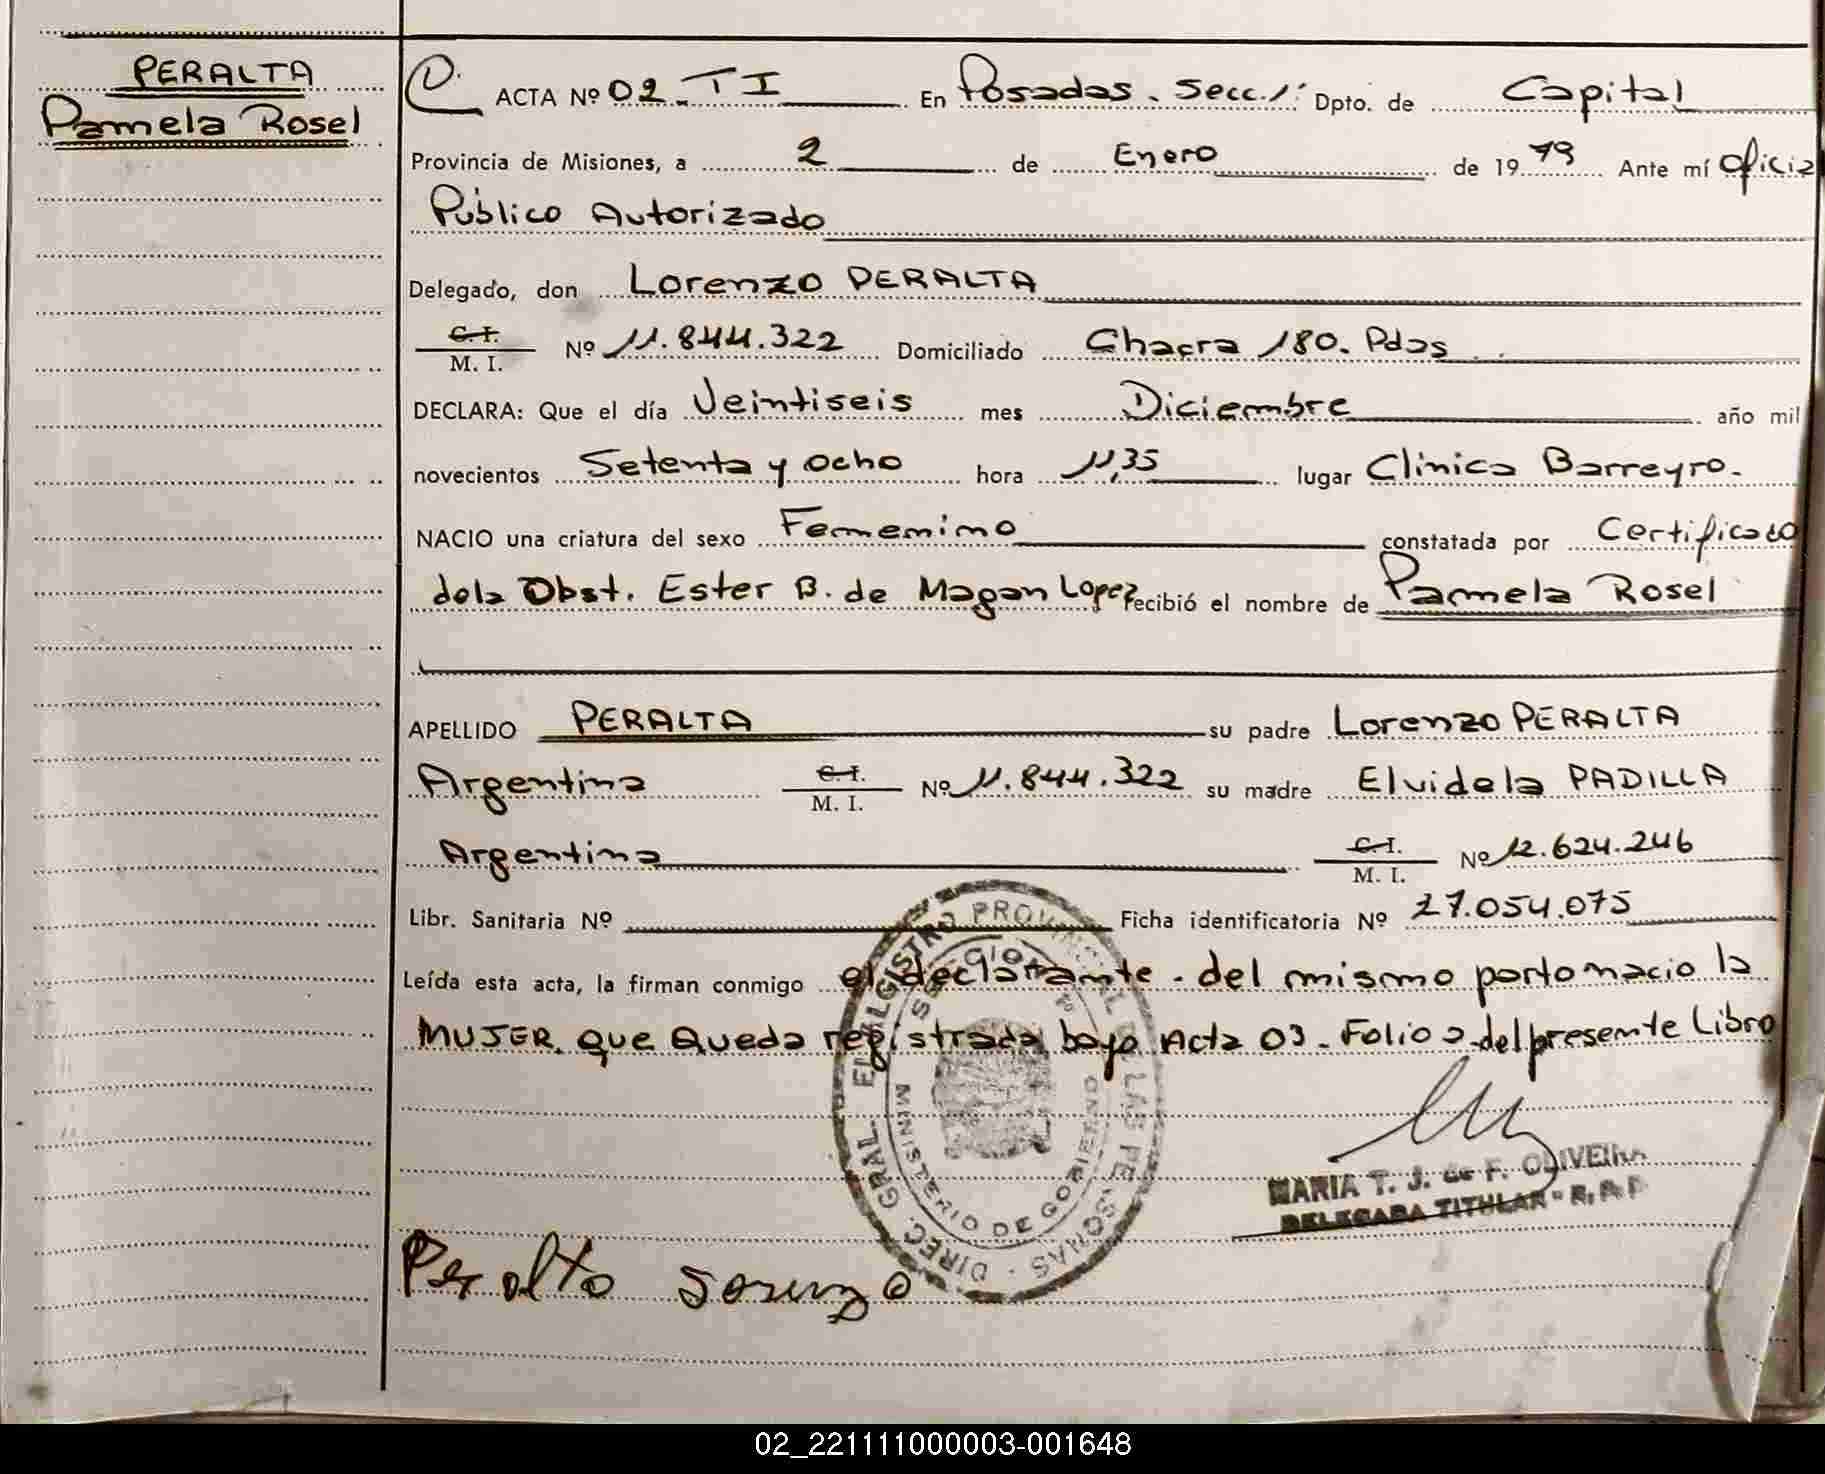 PERALTA
Pamela Rosel
ACTA Nº 02. TI En Posadas. Secc. 1: Dpto. de Capital
Provincia de Misiones, a 2 de Enero de 1979 Ante mí Oficia
Público Autorizado
Delegado, don Lorenzo PERALTA
C.I.
M. I. Nº 11.844.322 Domiciliado Chacra 180. Pdas
DECLARA: Que el día Veintiseis mes Diciembre año mil
novecientos Setenta y ocho hora 11,35 lugar Clinica Barreyro.
NACIO una criatura del sexo Femenino constatada por Certificado
dela Obst. Ester B. de Magan Lopez recibió el nombre de Pamela Rosel
APELLIDO PERALTA su padre Lorenzo PERALTA
Argentina C.I.
M. I. Nº 11.844.322 su madre Elvidela PADILLA
Argentina C.I.
M. I. Nº 12.624.246
Libr. Sanitaria Nº Ficha identificatoria Nº 27.054.075
Leída esta acta, la firman conmigo el declarante. del mismo parto nacio la
MUJER. que Queda registrada bajo Acta 03. Folio 2 del presente Libro
DIREC. GRAL. EL REGISTRO PROVINCIAL DE LAS PERSONAS
MINISTERIO DE GOBIERNO
MARIA T. J. de F. OLIVEIRA
DELEGADA TITULAR - R. P. P.
Peralta Lorenzo
02_221111000003-001648